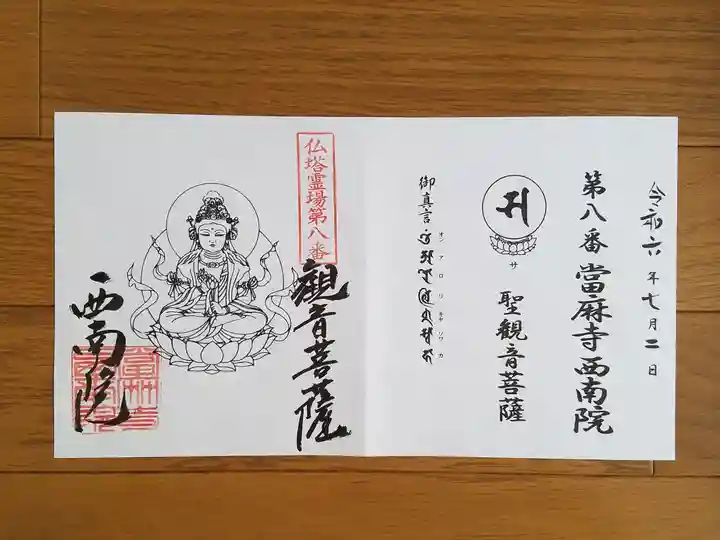 令和六年七月二日
第八番當麻寺西南院
サ
聖観音菩薩
御真言
オン アロリキャ ソワカ
仏塔霊場第八番
観音菩薩
西南院